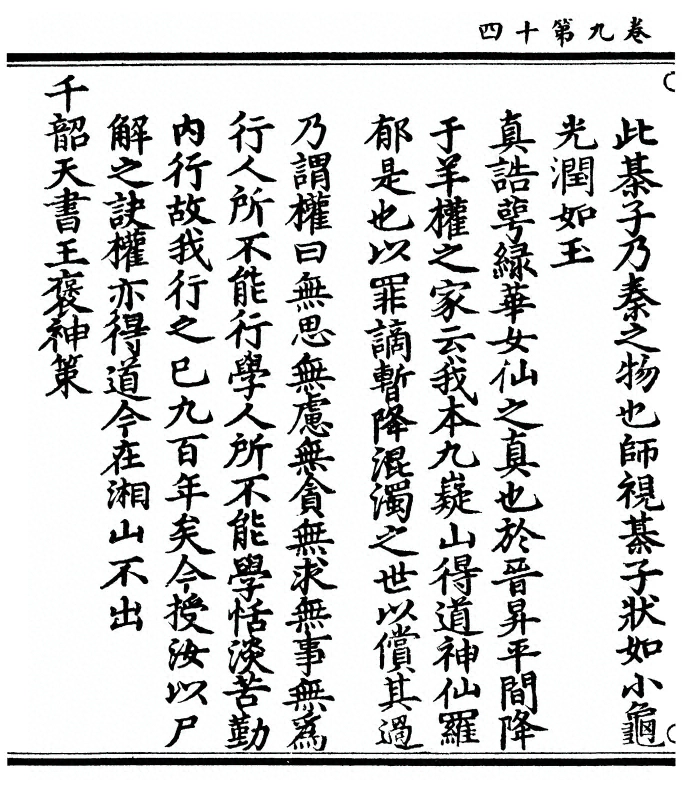 卷九第十四
此棊子乃秦之物也師視棊子狀如小龜
光潤如玉
真誥萼緑華女仙之真也於晉昇平間降
于羊權之家云我本九嶷山得道神仙羅
郁是也以罪謫暫降混濁之世以償其過
乃謂權曰無思無慮無貪無求無事無爲
行人所不能行學人所不能學恬淡苦勤
内行故我行之已九百年矣今授汝以尸
解之訣權亦得道今在湘山不出
千韶天書王褒神策